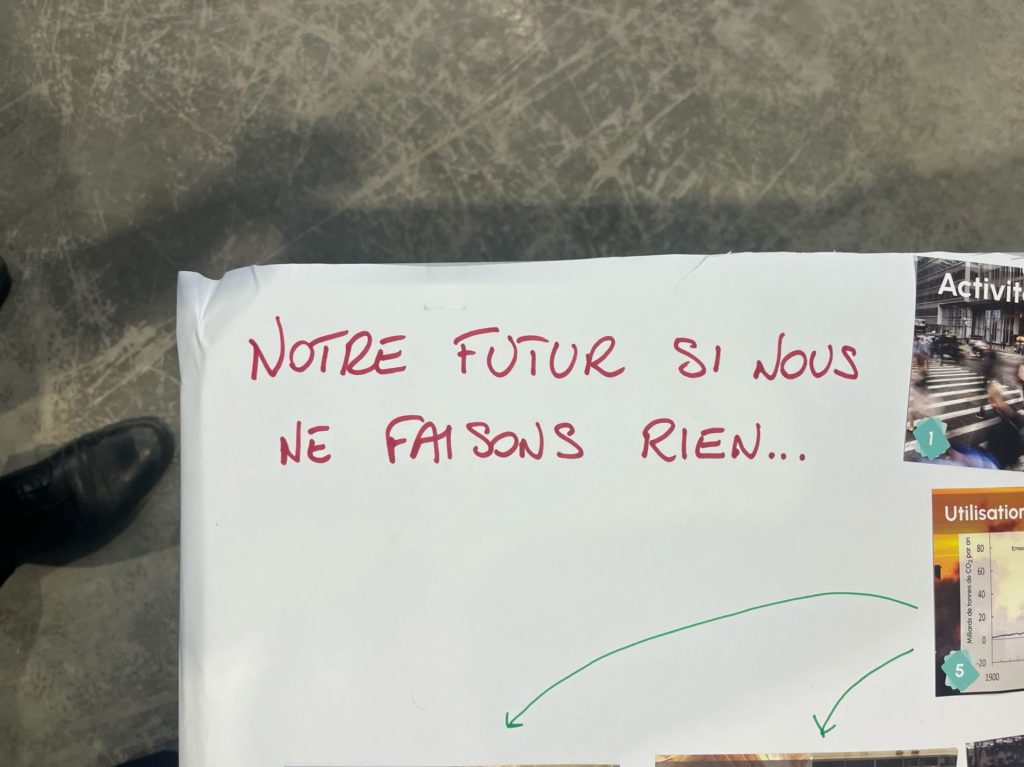 NOTRE FUTUR SI NOUS
NE FAISONS RIEN...
1
80
60
Milliards de tonnes de CO₂ par an
40
20
0
-20
1900
5